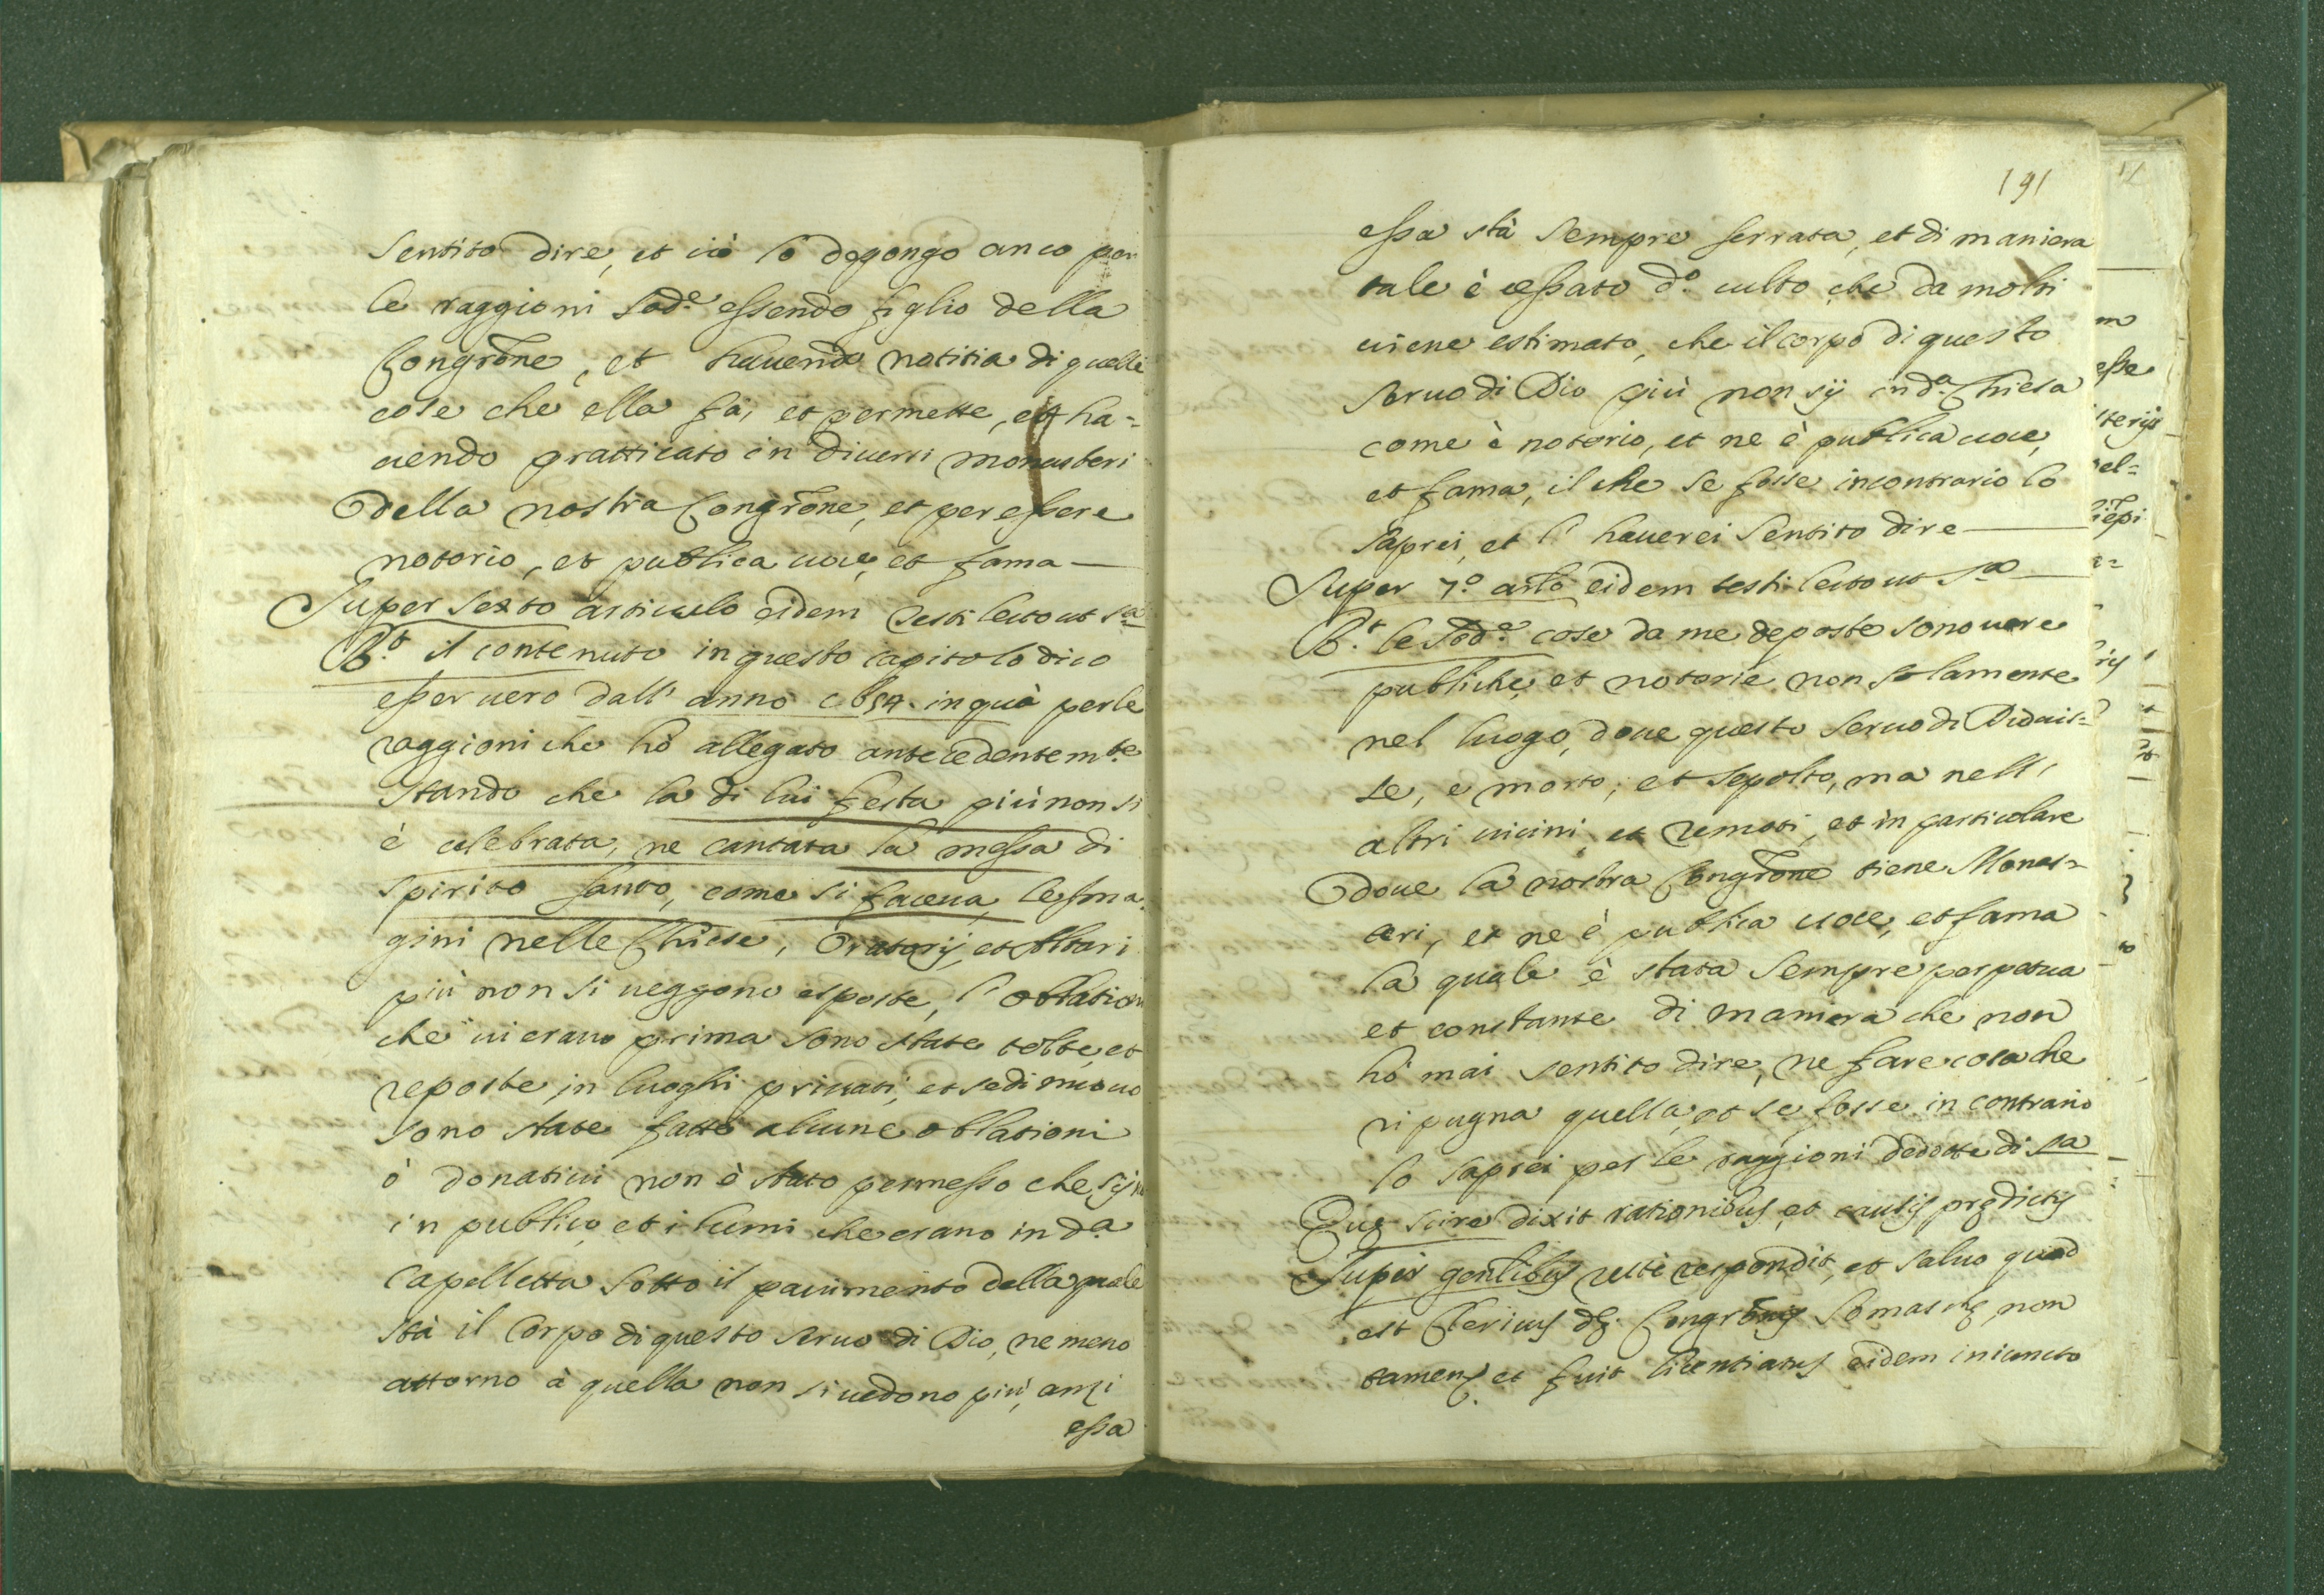 sentito dire, et ciò lo depongo anco per
le raggioni sod.e essendo figlio della
Congrõne, et havendo notitia di quelle
cose che ella fà, et permette, et ha=
uendo pratticato in diuersi monasteri
della nostra Congrõne, et per essere
notorio, et publica uoce, et fama —
Super sexto articulo eidem testi lecto ut s.a
R.t il contenuto in questo capitolo dico
esser uero dall' anno in quà per le
raggioni che hò allegato antecedentem.te
stando che la di lui festa più non si
è celebrata, ne cantata la messa di
spirito santo, come si faceua, le ima=
gini nelle Chiese, Oratorij, et Altari
più non si ueggono esposte, l' oblationi
che ui erano prima sono state tolte, et
reposte in luoghi priuati, et se di nuouo
sono state fatte alcune oblationi
ò donatiui non è stato permesso che sijno
in publico, et i lumi che erano in d.a
Capelletta sotto il pauimento della quale
stà il Corpo di questo seruo di Dio, ne meno
attorno à quella non si uedono più, anzi
essa
191
essa stà sempre serrata, et di maniera
tale è cessato d.o culto, che da molti
uiene estimato, che il corpo di questo
seruo di Dio più non sij in d.a Chiesa
come è notorio, et ne è publica uoce,
et fama, il che se fosse incontrario lo
saprei, et l' hauerei sentito dire —
Super 7.o arlo eidem testi lecto ut s.a —
R.t le sod.e cose da me deposte sono uere
publiche, et notorie non solamente
nel luogo, doue questo seruo di Dio uis=
se, e morto, et sepolto, ma nell'
altri uicini, et remoti, et in particolare
doue la nostra Congrõne tiene Monas=
teri, et ne è publica uoce, et fama
la quale è stata sempre perpetua
et constante di maniera che non
hò mai sentito dire, ne fare cosa che
ripugna quella, et se fosse in contrario
lo saprei per le raggioni dedotte di s.a
Quę scire dixit rationibus, et causis prędictis
Super gñlibus recte respondit, et saluo quod
est Clericus dę Congrõnis Somaschę non
tamen et fuit licentiatus eidem iniuncto